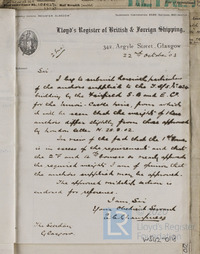 Lloyd's Register of British & Foreign Shipping,
342, Argyle Street, Glasgow
22nd October 03
Sir
I beg to submit herewith particulars
of the anchors supplied to the
building by the Fairfield S.B. & E. Co
for the Union Castle Line, from which
it will be seen that the weights of these
anchors differ slightly from those approved
by London letter
In view of the fact that the 1st Bower
is in excess of the requirements and that
the 2nd and 3rd Bowers so nearly approach
the required weights I am of opinion that
the anchors supplied may be approved.
The approved midship section is
enclosed for reference.
I am Sir
Your obedient Servant
The Secretary
Glasgow